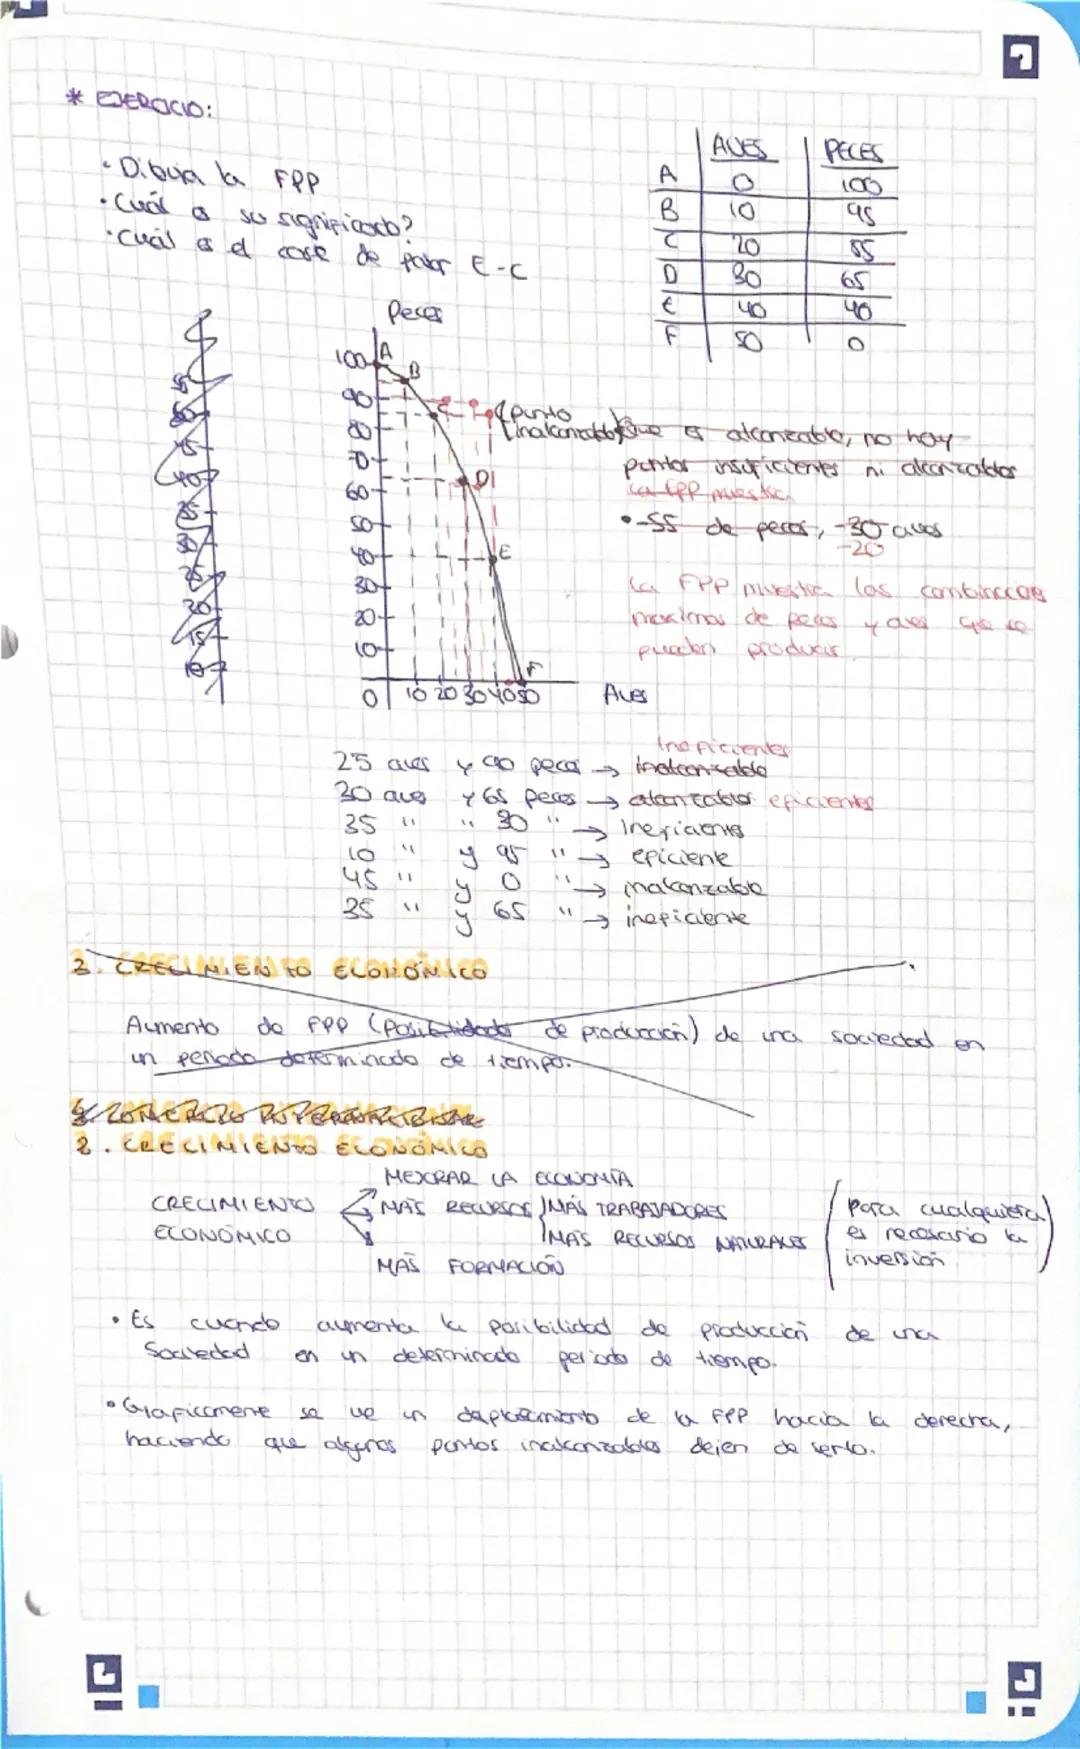 * EJERCICIO:
· Dibuja la FPP
· Cuál es su significado?
· Cuál es el coste de pasar E-C
AVES PECES
A 0 100
B 10 95
C 20 85
D 30 65
E 40 40
F 50 0
Peces
100 A
B
90
C
80
70
D
60
50
40 E
30
20
10
F
0 10 20 30 40 50 Aves
punto
inalcanzable
que es alcanzable, no hay
puntos insuficientes ni alcanzables
La FPP muestra
• -55 de peces, -30 aves
-20
La FPP muestra las combinaciones
maximas de peces y aves que se
pueden producir
Ineficientes
25 aves y 90 peces → inalcanzable
30 aves y 65 peces → alcanzables eficientes
35 " " 30 " → Ineficiente
10 " y 95 " → eficiente
45 " y 0 " → inalcanzable
35 " y 65 " → ineficiente
3. CRECIMIENTO ECONÓMICO
Aumento de FPP (posibilidades de producción) de una sociedad en
un periodo determinado de tiempo.
2. CRECIMIENTO ECONÓMICO
MEJORAR LA ECONOMÍA
CRECIMIENTO MÁS RECURSOS MÁS TRABAJADORES
ECONÓMICO MÁS RECURSOS NATURALES
MÁS FORMACIÓN
(para cualquiera
es necesario la
inversión)
• Es cuando aumenta la posibilidad de producción de una
Sociedad en un determinado periodo de tiempo.
• Graficamente se ve un desplazamiento de la FPP hacia la derecha,
haciendo que algunos puntos inalcanzables dejen de serlo.